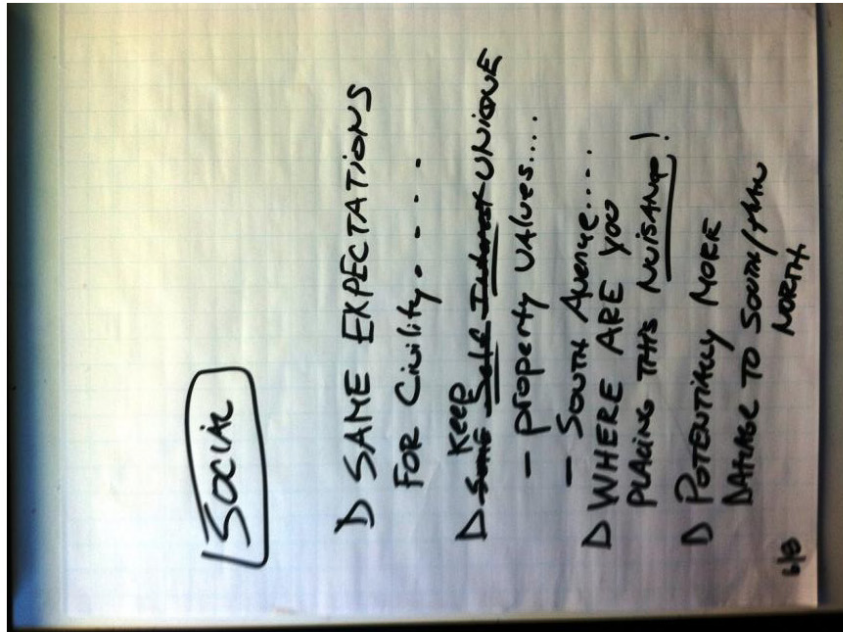 SOCIAL
SAME EXPECTATIONS
FOR Civility.....
Keep
Same Self Interest UNIQUE
- property values....
- South Avenue....
WHERE ARE YOU
PLACING THIS NUISANCE!
POTENTIALLY MORE
DAMAGE TO SOUTH/THAN
NORTH
6/8